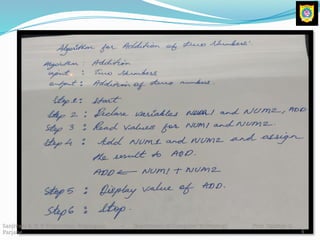 Algorithm for Addition of two Numbers.
Algorithm : Addition
input : Two Numbers
output : Addition of two numbers.
Step 1 : Start
Step 2 : Declare variables NUM1 and NUM2, ADD
Step 3 : Read values for NUM1 and NUM2.
Step 4 : Add NUM1 and NUM2 and assign
the result to ADD.
ADD ← NUM1 + NUM2
Step 5 : Display value of ADD.
Step 6 : Stop.